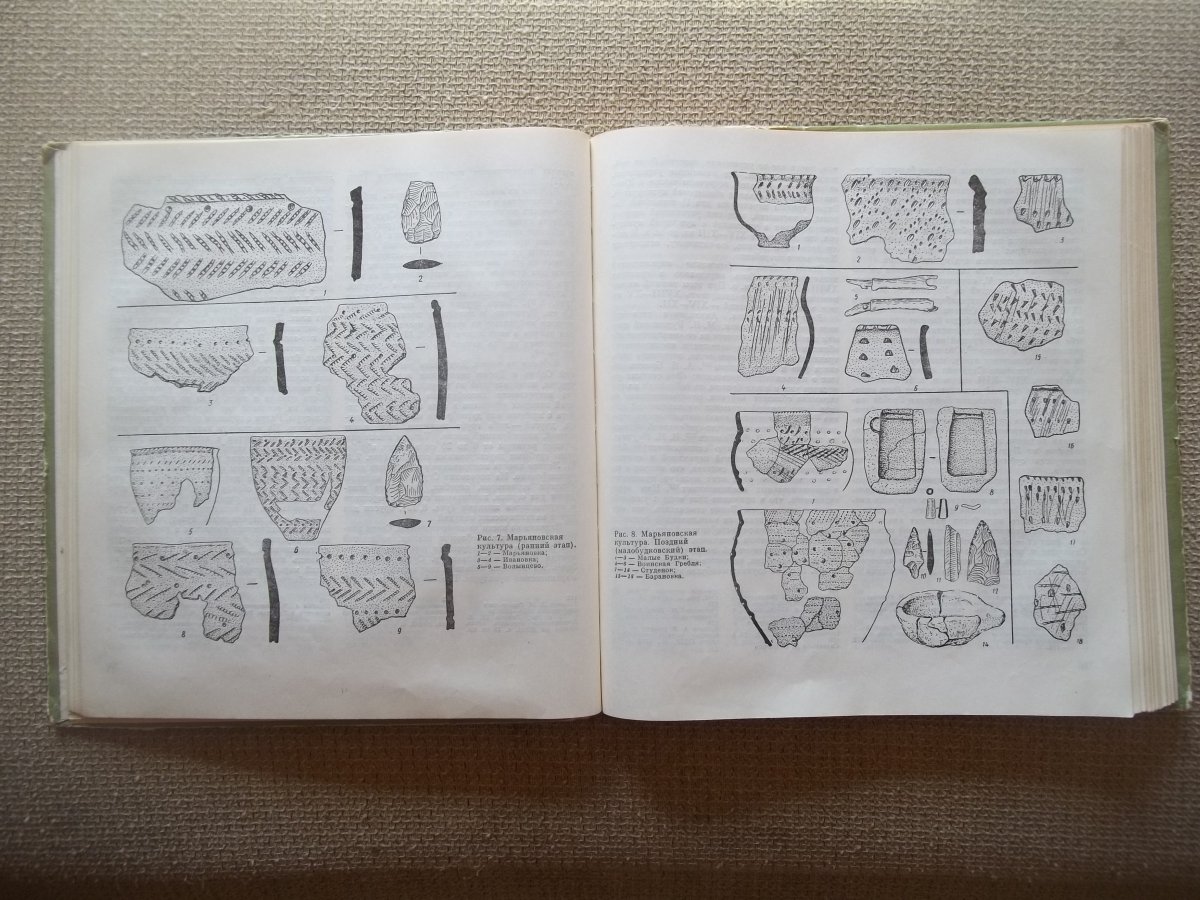 1
2
3
4
5
6
7
8
9
Рис. 7. Марьяновская
культура (ранний этап).
1—2 — Марьяновка;
3—4 — Ивановка;
5—9 — Волынцево.
1
2
3
4
5
6
15
16
7
8
9
17
10
11
12
14
18
Рис. 8. Марьяновская
культура. Поздний
(малобудковский) этап.
1—3 — Малые Будки;
4—6 — Воинская Гребля;
7—14 — Студенок;
15—18 — Барановка.